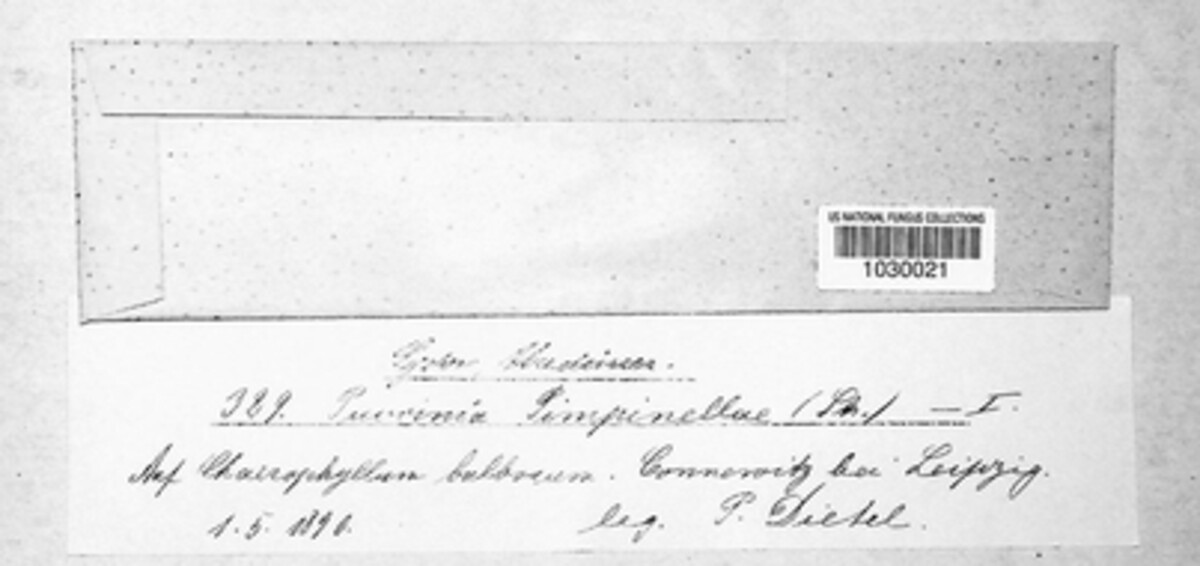 US NATIONAL FUNGUS COLLECTIONS
1030021
329. Puccinia Pimpinellae (Str.) — I.
Auf Chaerophyllum bulbosum. Connewitz bei Leipzig.
1. 5. 1890. leg. P. Dietel.